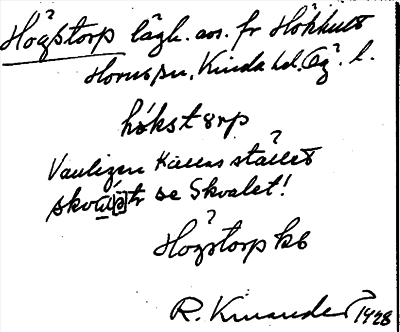 Högstorp lägh. av. fr Hökhult
Horns sn, Kinda hd, Ög. l.
hökstorp
Vanligen kallas stället
skvalet se Skvalet!
Högstorp kb
R. Kinander 1928